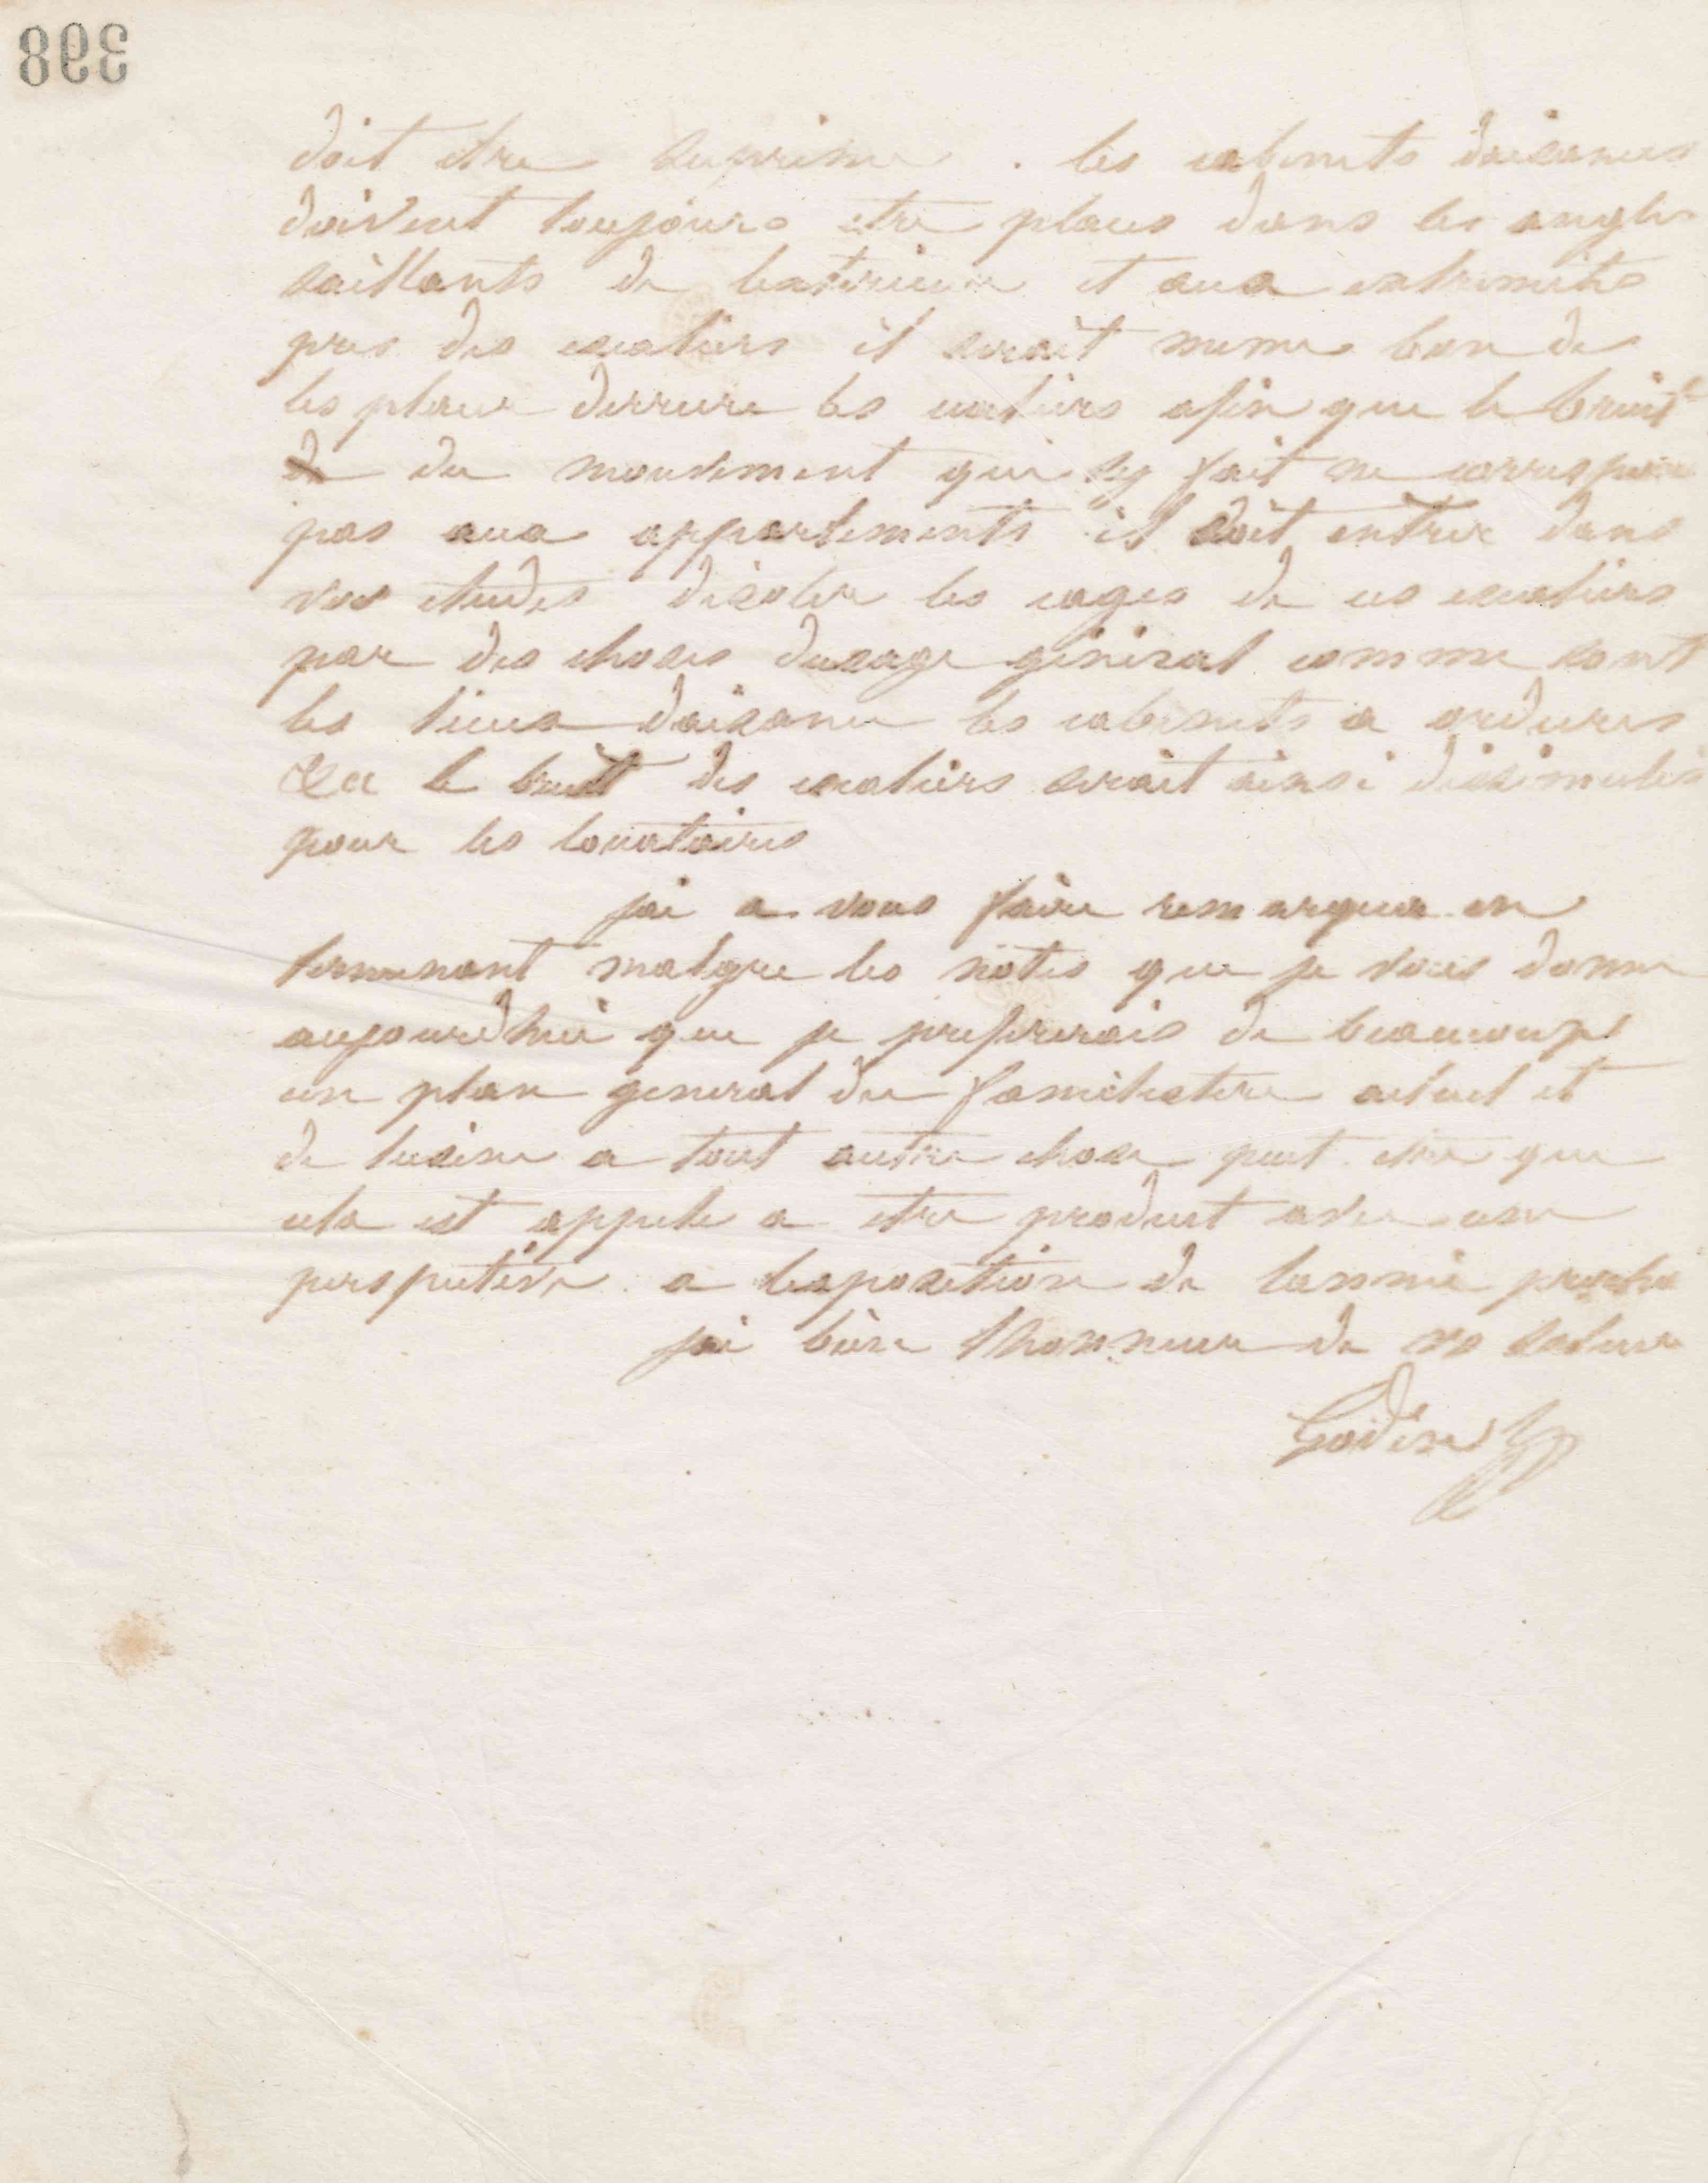 398
doit etre suprimé. les cabinets daisances
doivent toujours etre places dans les angles
saillants de lexterieur et aux extremites
pres des escaliers il serait meme bon de
les placer derriere les escaliers afin que le bruit
de du mouvement qui sy fait ne corresponde
pas aux appartements il doit entrer dans
vos etudes disoler les cages de ces escaliers
par des choses dusage géniral comme sont
les lieux daisance les cabinets a ordures
&a le bruit des escaliers serait ainsi dissimulés
pour les locataires
jai a vous faire remarquer en
terminant malgre les notes que je vous donne
aujourdhui que je prefererais de beaucoup
un plan general du familistere actuel et
de lusine a tout autre chose peut etre que
cela est appele a etre produit avec une
perspective a lexposition de lannée proche
jai bien lhonneur de vs saluer
Godin